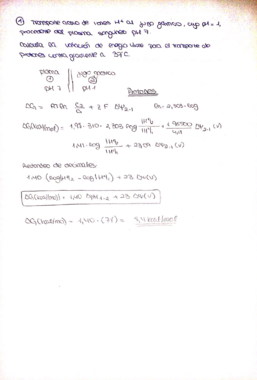 ① Transporte activo de iones H⁺ al jugo gástrico, cuyo pH = 1
procedente del plasma sanguíneo pH 7.
Calcula la variación de energía libre para el transporte de
protones contra gradiente a 37ºC.
plasma || jugo gástrico
① || ②
pH 7 || pH 1
ΔG = RT ln C₂/C₁ + Z F ΔΨ₂₋₁ ln = 2,303·log
1,41·log [H⁺]₂/[H⁺]₁ + 23,0 ΔΨ₂₋₁ (V)
decimales
1,40 (log[H⁺]₂ - log[H⁺]₁) + 23 ΔΨ(V)
ΔG(kcal/mol) = 1,40 ΔpH₁₋₂ + 23 ΔΨ(V)
ΔG(kcal/mol) = 1,40·(7-1) = 8,4 kcal/mol